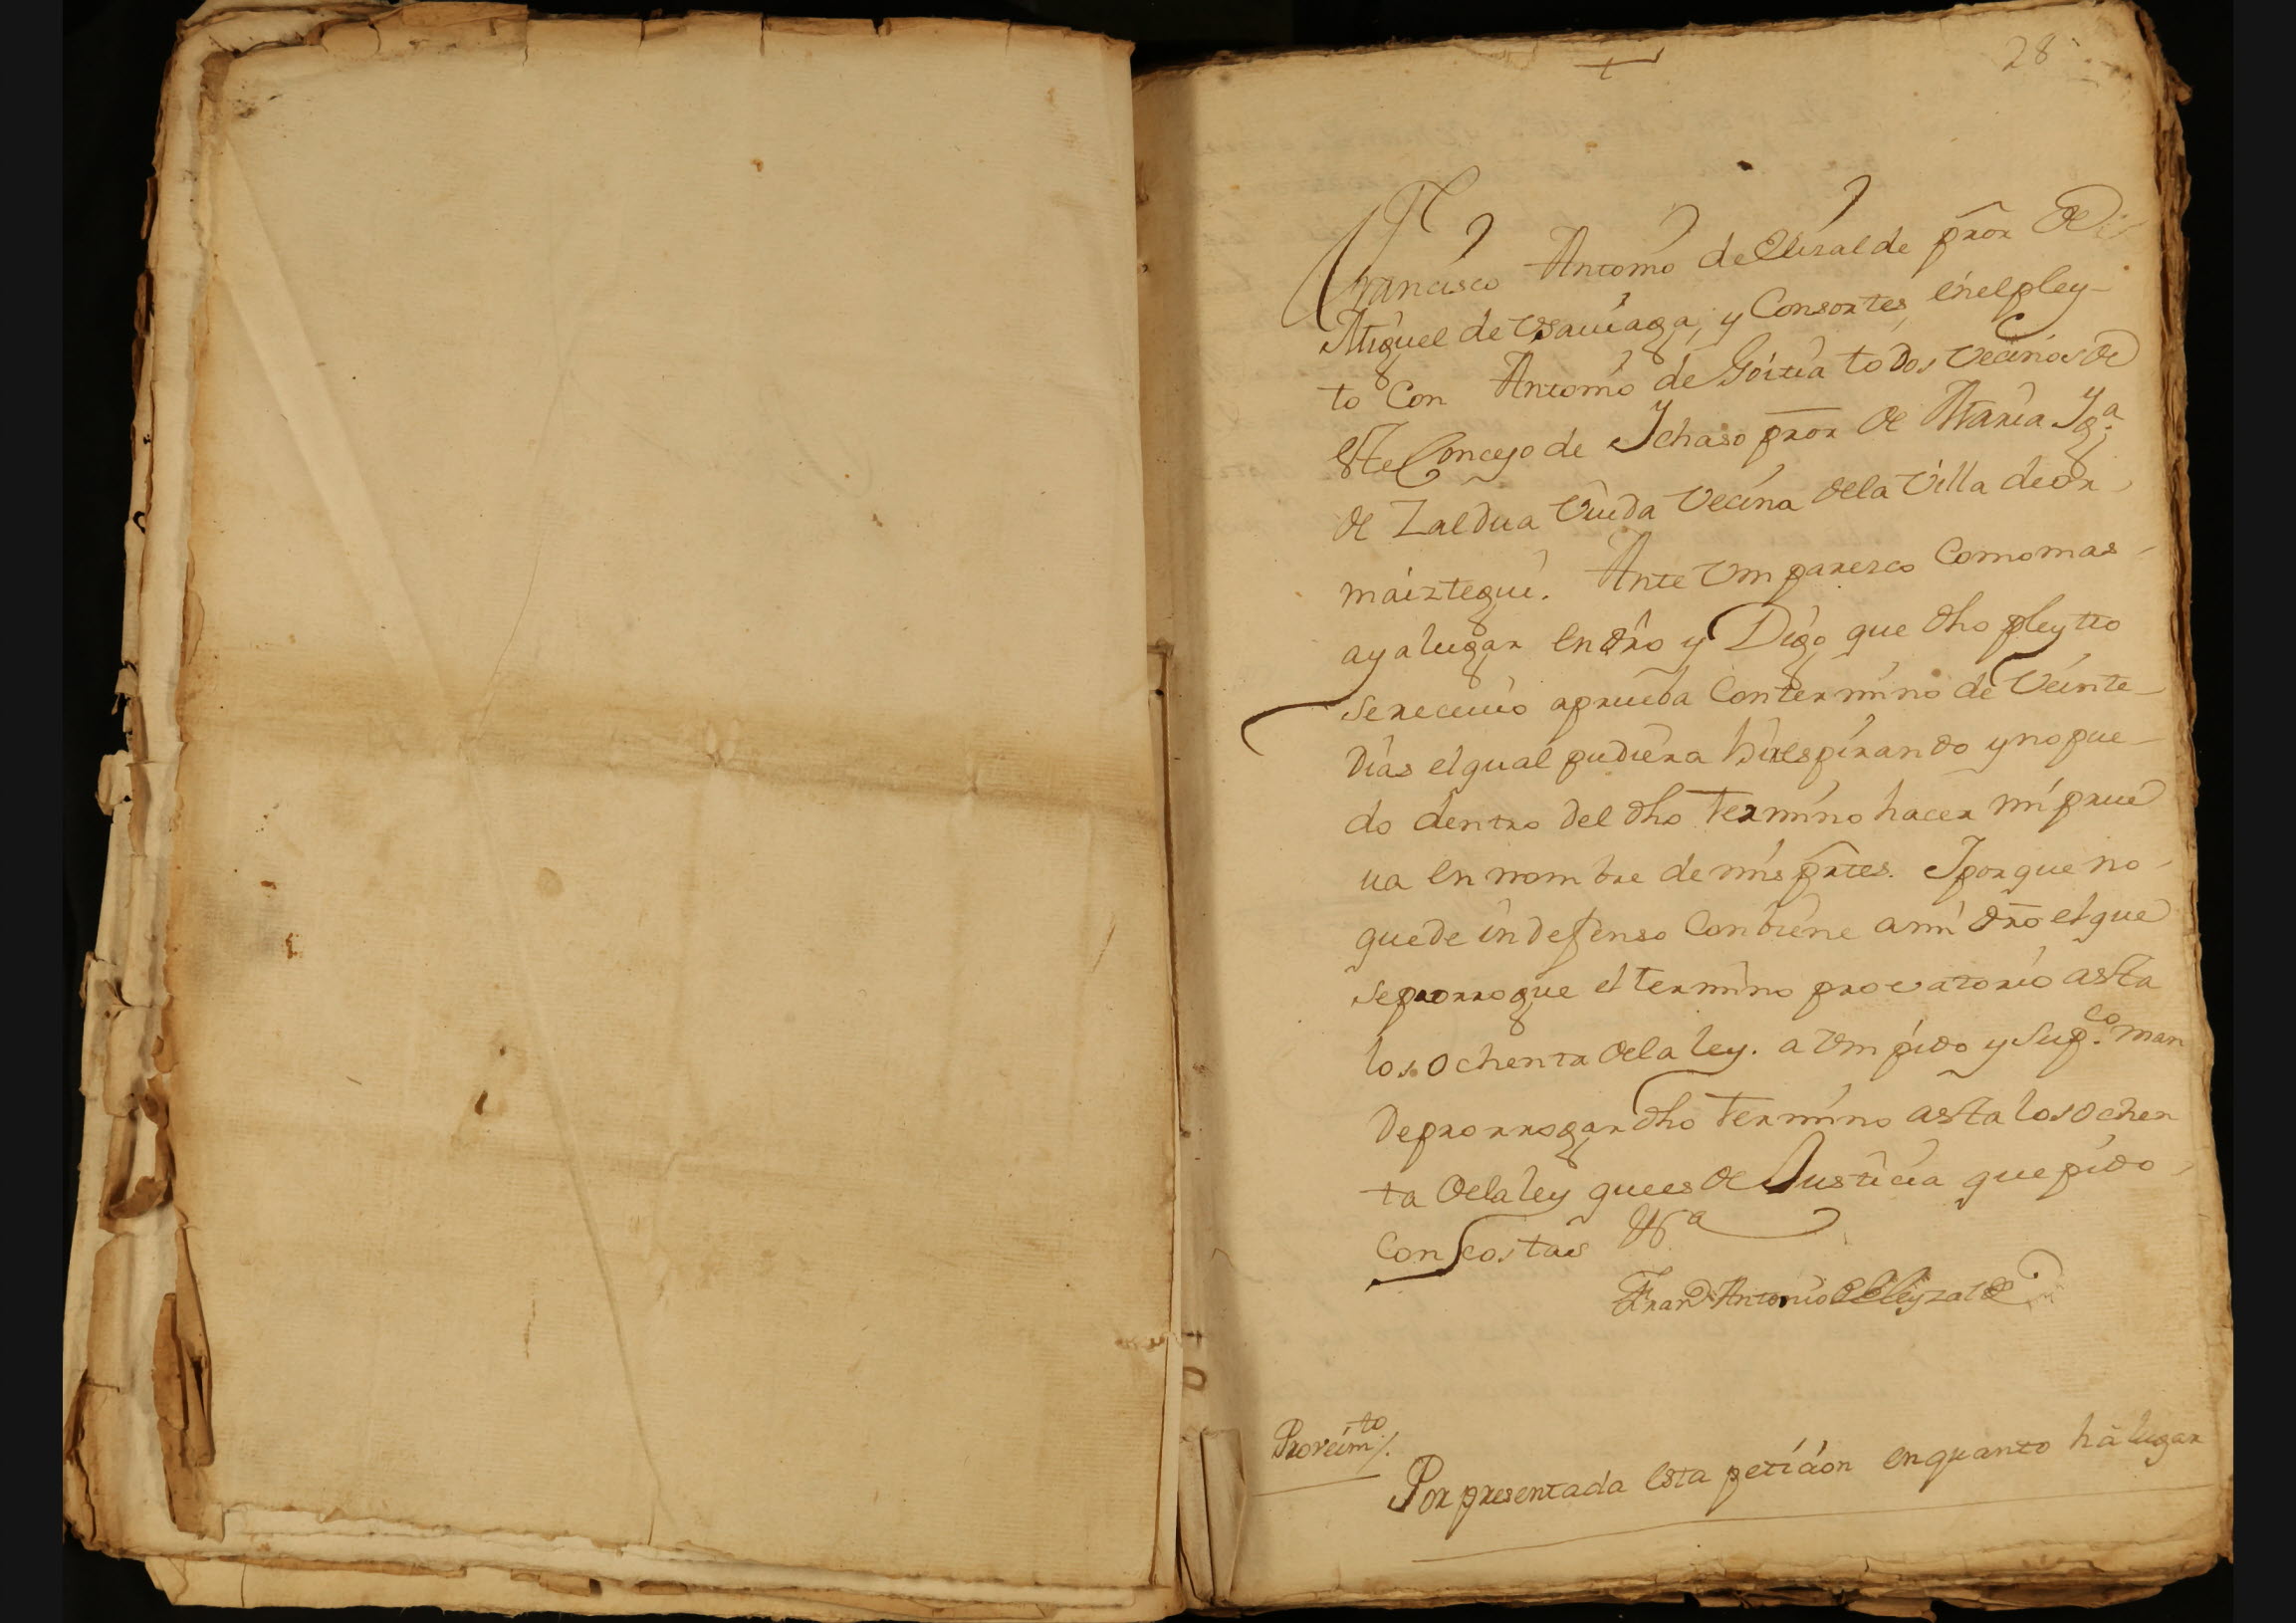 28
Francisco Antonio de Elisalde pror de
Miguel de Usauiaga, y Consortes, en el pley-
to Con Antonio de Goitia todos Vecinos de
este Concejo de Ychaso pror de Maria Yg.ª
de Zaldua Viuda Vecina dela Villa de or
maiztegui. Ante Vm paresco Como mas
aya lugar en dro y Digo que dho pleyto
se receuio aprueba Con termino de Veinte
dias el qual pudiera hir espirando y no pue-
do dentro del dho termino hacer mi prue
ua en nombre de mis prtes. Y porque no
quede indefenso Conbiene a mi dro el que
se prorrogue el termino provatorio asta
los ochenta dela ley. a Vm pido y Sup.co man
de prorrogar dho termino asta los ochen
ta dela ley que es de Justicia que pido
Con costas &ª
Fran.co Antonio de Eleyzalde
Proveim.to /.
Por presentada esta peticion en quanto hà lugar